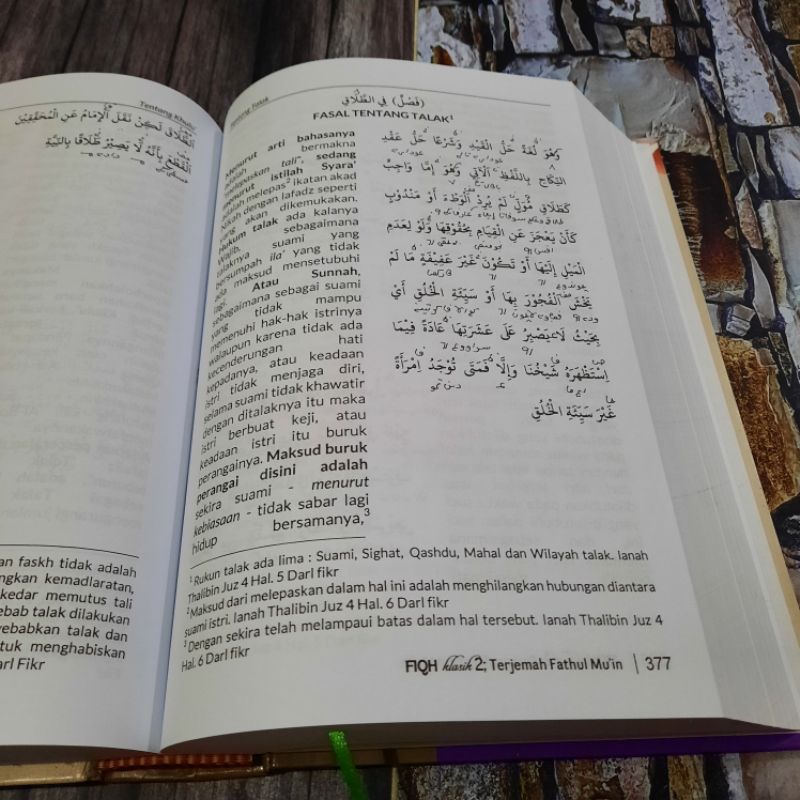 Tentang Khulu'
الطَّلَاقِ لَكِنْ نَقَلَ الْإِمَامُ عَنِ الْمُحَقِّقِيْنَ
الْقَطْعَ بِأَنَّهُ لَا يَصِيْرُ طَلَاقًا بِالنِّيَّةِ
an faskh tidak adalah
ngkan kemadlaratan,
kedar memutus tali
ebab talak dilakukan
yebabkan talak dan
tuk menghabiskan
arl Fikr
Tentang Talak
(فَصْلٌ) فِي الطَّلَاقِ
FASAL TENTANG TALAK¹
Menurut arti bahasanya
talak bermakna
"melepaskan tali", sedang
menurut istilah Syara'
adalah melepas² ikatan akad
nikah dengan lafadz seperti
yang akan dikemukakan.
Hukum talak ada kalanya
Wajib, sebagaimana
talaknya suami yang
bersumpah ila' yang tidak
ada maksud mensetubuhi
lagi. Atau Sunnah,
sebagaimana sebagai suami
yang tidak mampu
memenuhi hak-hak istrinya
walaupun karena tidak ada
kecenderungan hati
kepadanya, atau keadaan
istri tidak menjaga diri,
selama suami tidak khawatir
dengan ditalaknya itu maka
istri berbuat keji, atau
keadaan istri itu buruk
perangainya. Maksud buruk
perangai disini adalah
sekira suami - menurut
kebiasaan - tidak sabar lagi
hidup bersamanya,³
وَهُوَ لُغَةً حَلُّ الْقَيْدِ وَشَرْعًا حَلُّ عَقْدِ
النِّكَاحِ بِاللَّفْظِ الْآتِي وَهُوَ إِمَّا وَاجِبٌ
كَطَلَاقِ مُوْلٍ لَمْ يُرِدِ الْوَطْءَ أَوْ مَنْدُوْبٌ
كَأَنْ يَعْجَزَ عَنِ الْقِيَامِ بِحُقُوْقِهَا وَلَوْ لِعَدَمِ
الْمَيْلِ إِلَيْهَا أَوْ تَكُوْنَ غَيْرَ عَفِيْفَةٍ مَا لَمْ
يَخْشَ الْفُجُوْرَ بِهَا أَوْ سَيِّئَةَ الْخُلُقِ أَيْ
بِحَيْثُ لَا يَصْبِرُ عَلَى عِشْرَتِهَا عَادَةً فِيْمَا
اِسْتَظْهَرَهُ شَيْخُنَا وَإِلَّا فَمَتَى تُوْجَدُ اِمْرَأَةٌ
غَيْرَ سَيِّئَةِ الْخُلُقِ
¹ Rukun talak ada lima : Suami, Sighat, Qashdu, Mahal dan Wilayah talak. Ianah
Thalibin Juz 4 Hal. 5 Darl fikr
² Maksud dari melepaskan dalam hal ini adalah menghilangkan hubungan diantara
suami istri. Ianah Thalibin Juz 4 Hal. 6 Darl fikr
³ Dengan sekira telah melampaui batas dalam hal tersebut. Ianah Thalibin Juz 4
Hal. 6 Darl fikr
FIQH klasik 2; Terjemah Fathul Mu'in | 377